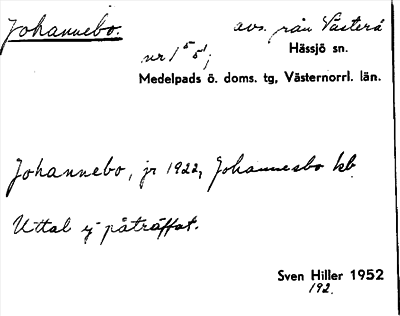 Johannebo. avs. från Västerå
nr 1⁵5¹; Hässjö sn.
Medelpads ö. doms. tg, Västernorrl. län.
Johannebo, jr 1922, Johannesbo kb
Uttal ej påträffat.
Sven Hiller 1952
192.